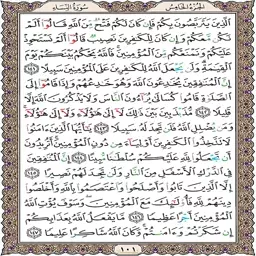 الجزء الخامس سورة النساء
ٱلَّذِينَ يَتَرَبَّصُونَ بِكُمْ فَإِن كَانَ لَكُمْ فَتْحٌ مِّنَ ٱللَّهِ قَالُوٓا۟ أَلَمْ
نَكُن مَّعَكُمْ وَإِن كَانَ لِلْكَٰفِرِينَ نَصِيبٌ قَالُوٓا۟ أَلَمْ نَسْتَحْوِذْ
عَلَيْكُمْ وَنَمْنَعْكُم مِّنَ ٱلْمُؤْمِنِينَ فَٱللَّهُ يَحْكُمُ بَيْنَكُمْ يَوْمَ
ٱلْقِيَٰمَةِ وَلَن يَجْعَلَ ٱللَّهُ لِلْكَٰفِرِينَ عَلَى ٱلْمُؤْمِنِينَ سَبِيلًا ١٤١
إِنَّ ٱلْمُنَٰفِقِينَ يُخَٰدِعُونَ ٱللَّهَ وَهُوَ خَٰدِعُهُمْ وَإِذَا قَامُوٓا۟ إِلَى
ٱلصَّلَوٰةِ قَامُوا۟ كُسَالَىٰ يُرَآءُونَ ٱلنَّاسَ وَلَا يَذْكُرُونَ ٱللَّهَ إِلَّا
قَلِيلًا ١٤٢ مُّذَبْذَبِينَ بَيْنَ ذَٰلِكَ لَآ إِلَىٰ هَٰٓؤُلَآءِ وَلَآ إِلَىٰ هَٰٓؤُلَآءِ
وَمَن يُضْلِلِ ٱللَّهُ فَلَن تَجِدَ لَهُۥ سَبِيلًا ١٤٣ يَٰٓأَيُّهَا ٱلَّذِينَ ءَامَنُوا۟
لَا تَتَّخِذُوا۟ ٱلْكَٰفِرِينَ أَوْلِيَآءَ مِن دُونِ ٱلْمُؤْمِنِينَ أَتُرِيدُونَ
أَن تَجْعَلُوا۟ لِلَّهِ عَلَيْكُمْ سُلْطَٰنًا مُّبِينًا ١٤٤ إِنَّ ٱلْمُنَٰفِقِينَ
فِى ٱلدَّرْكِ ٱلْأَسْفَلِ مِنَ ٱلنَّارِ وَلَن تَجِدَ لَهُمْ نَصِيرًا ١٤٥
إِلَّا ٱلَّذِينَ تَابُوا۟ وَأَصْلَحُوا۟ وَٱعْتَصَمُوا۟ بِٱللَّهِ وَأَخْلَصُوا۟
دِينَهُمْ لِلَّهِ فَأُو۟لَٰٓئِكَ مَعَ ٱلْمُؤْمِنِينَ وَسَوْفَ يُؤْتِ ٱللَّهُ
ٱلْمُؤْمِنِينَ أَجْرًا عَظِيمًا ١٤٦ مَّا يَفْعَلُ ٱللَّهُ بِعَذَابِكُمْ
إِن شَكَرْتُمْ وَءَامَنتُمْ وَكَانَ ٱللَّهُ شَاكِرًا عَلِيمًا ١٤٧
١٠١